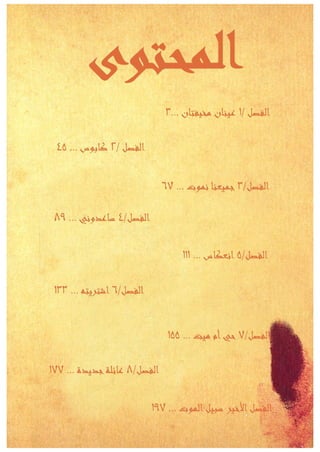 المحتوى
الفصل /١ عينان مخيفتان ...٣
الفصل /٢ كابوس ... ٤٥
الفصل/٣ جميعنا نموت ... ٦٧
الفصل/٤ ساعدوني ... ٨٩
الفصل/٥ انعكاس ... ١١١
الفصل/٦ اشتريته ... ١٣٣
الفصل/٧ حي أم ميت ... ١٥٥
الفصل/٨ عائلة جديدة ... ١٧٧
الفصل الأخير سبيل الموت ... ١٩٧